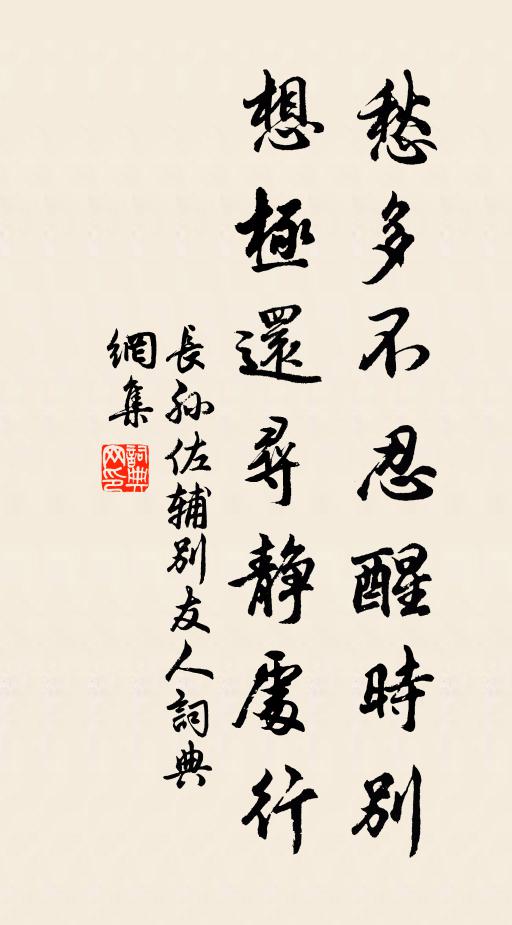 愁多不忍醒時別
想極還尋靜處行
長孫佐輔別友人詞典
網集
詞典
网印